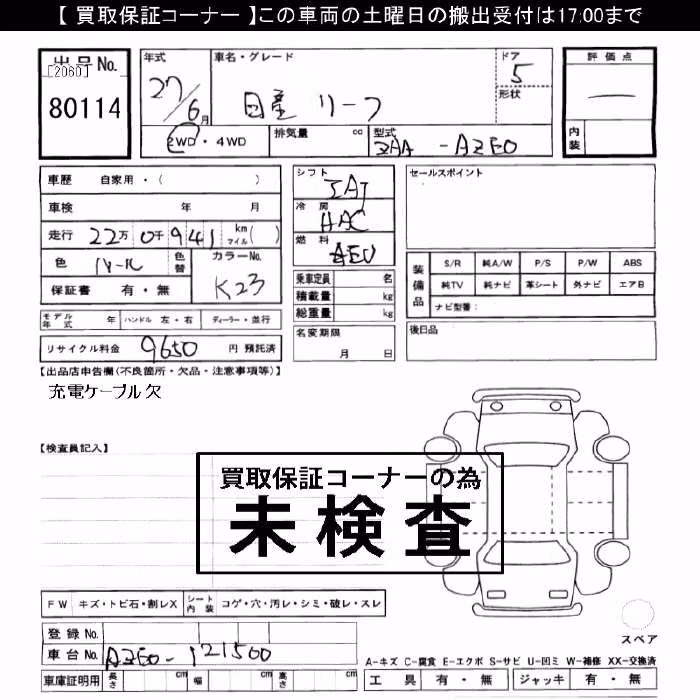 【 買取保証コーナー 】この車両の土曜日の搬出受付は17:00まで
出品No.
[2060]
80114
年式
27/6月
車名・グレード
日産 リーフ
ドア
5
形状
評価点
—
内装
2WD・4WD
排気量 cc
型式
ZAA - AZE0
車歴 自家用・( )
車検 年 月
走行 22万 0千 9 4 1 km マイル ( )
色 パール 色替
カラーNo.
K23
保証書 有・無
モデル年式 年 ハンドル 左・右 ディーラー・並行
リサイクル料金 9650 円 預託済
シフト
IAT
冷房
HAC
燃料
乗車定員 名
積載量 kg
総重量 kg
名変期限
月 日
セールスポイント
装備品
S/R 純A/W P/S P/W ABS
純TV 純ナビ 革シート 外ナビ エアB
ナビ型番：
後日品
【出品店申告欄(不良箇所・欠品・注意事項等)】
充電ケーブル欠
【検査員記入】
買取保証コーナーの為
未検査
FW キズ・トビ石・割レX シート内装 コゲ・穴・汚レ・シミ・破レ・スレ
登録 No.
車台 No. AZE0-121500
車庫証明用 長さ cm 幅 cm 高さ cm
スペア
A-キズ C-腐食 E-エクボ S-サビ U-凹ミ W-補修 XX-交換済
工具 有・無 ジャッキ 有・無